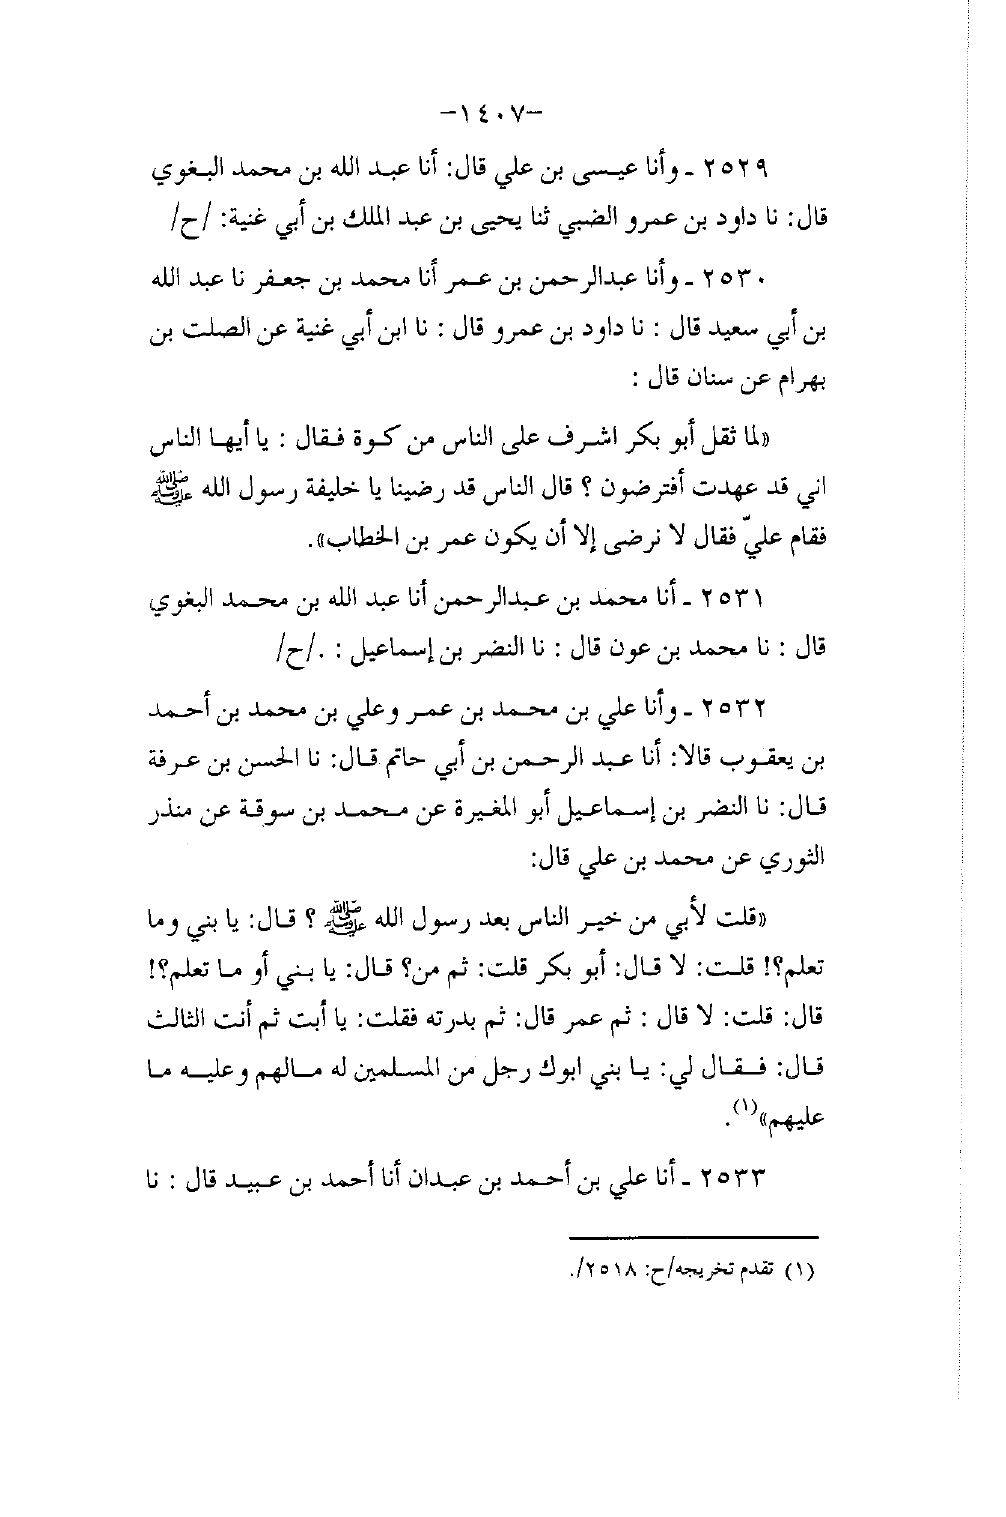 -١٤٠٧-
٢٥٢٩ ـ وأنا عيسى بن علي قال: أنا عبد الله بن محمد البغوي
قال: نا داود بن عمرو الضبي ثنا يحيى بن عبد الملك بن أبي غنية: /ح/
٢٥٣٠ ـ وأنا عبدالرحمن بن عمر أنا محمد بن جعفر نا عبد الله
بن أبي سعيد قال : نا داود بن عمرو قال : نا ابن أبي غنية عن الصلت بن
بهرام عن سنان قال :
«لما ثقل أبو بكر اشرف على الناس من كوة فقال : يا أيها الناس
اني قد عهدت أفترضون ؟ قال الناس قد رضينا يا خليفة رسول الله ﷺ
فقام عليّ فقال لا نرضى إلا أن يكون عمر بن الخطاب».
٢٥٣١ ـ أنا محمد بن عبدالرحمن أنا عبد الله بن محمد البغوي
قال : نا محمد بن عون قال : نا النضر بن إسماعيل : ./ح/
٢٥٣٢ ـ وأنا علي بن محمد بن عمر وعلي بن محمد بن أحمد
بن يعقوب قالا: أنا عبد الرحمن بن أبي حاتم قال: نا الحسن بن عرفة
قال: نا النضر بن إسماعيل أبو المغيرة عن محمد بن سوقة عن منذر
الثوري عن محمد بن علي قال:
«قلت لأبي من خير الناس بعد رسول الله ﷺ ؟ قال: يا بني وما
تعلم؟! قلت: لا قال: أبو بكر قلت: ثم من؟ قال: يا بني أو ما تعلم؟!
قال: قلت: لا قال : ثم عمر قال: ثم بدرته فقلت: يا أبت ثم أنت الثالث
قال: فقال لي: يا بني ابوك رجل من المسلمين له مالهم وعليه ما
عليهم»(١).
٢٥٣٣ ـ أنا علي بن أحمد بن عبدان أنا أحمد بن عبيد قال : نا
(١) تقدم تخريجه/ح: ٢٥١٨/.